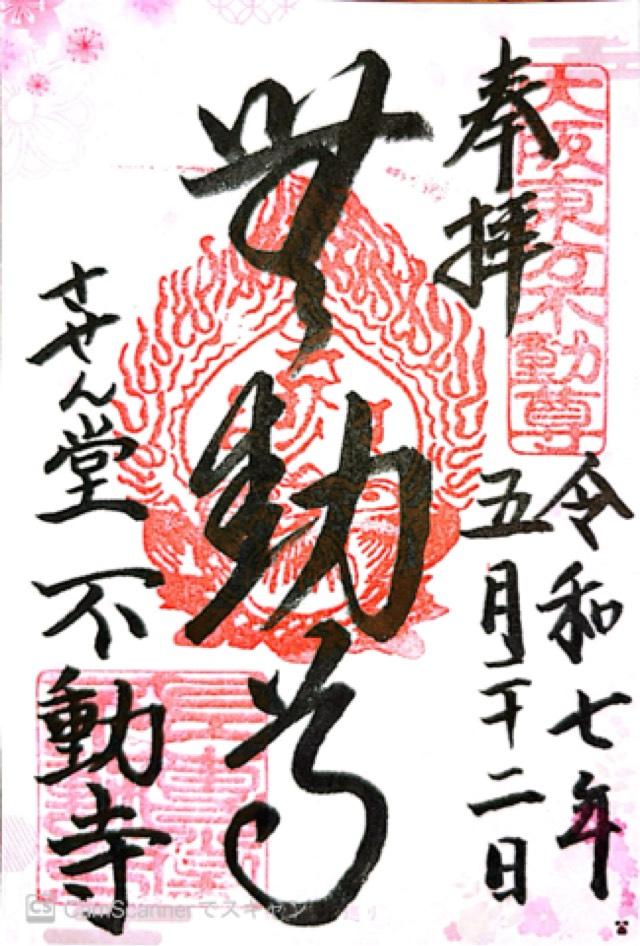 奉拝
大阪東方不動尊
令和七年
五月二十二日
無動尊
させん堂 不動寺
CS CamScanner でスキャン